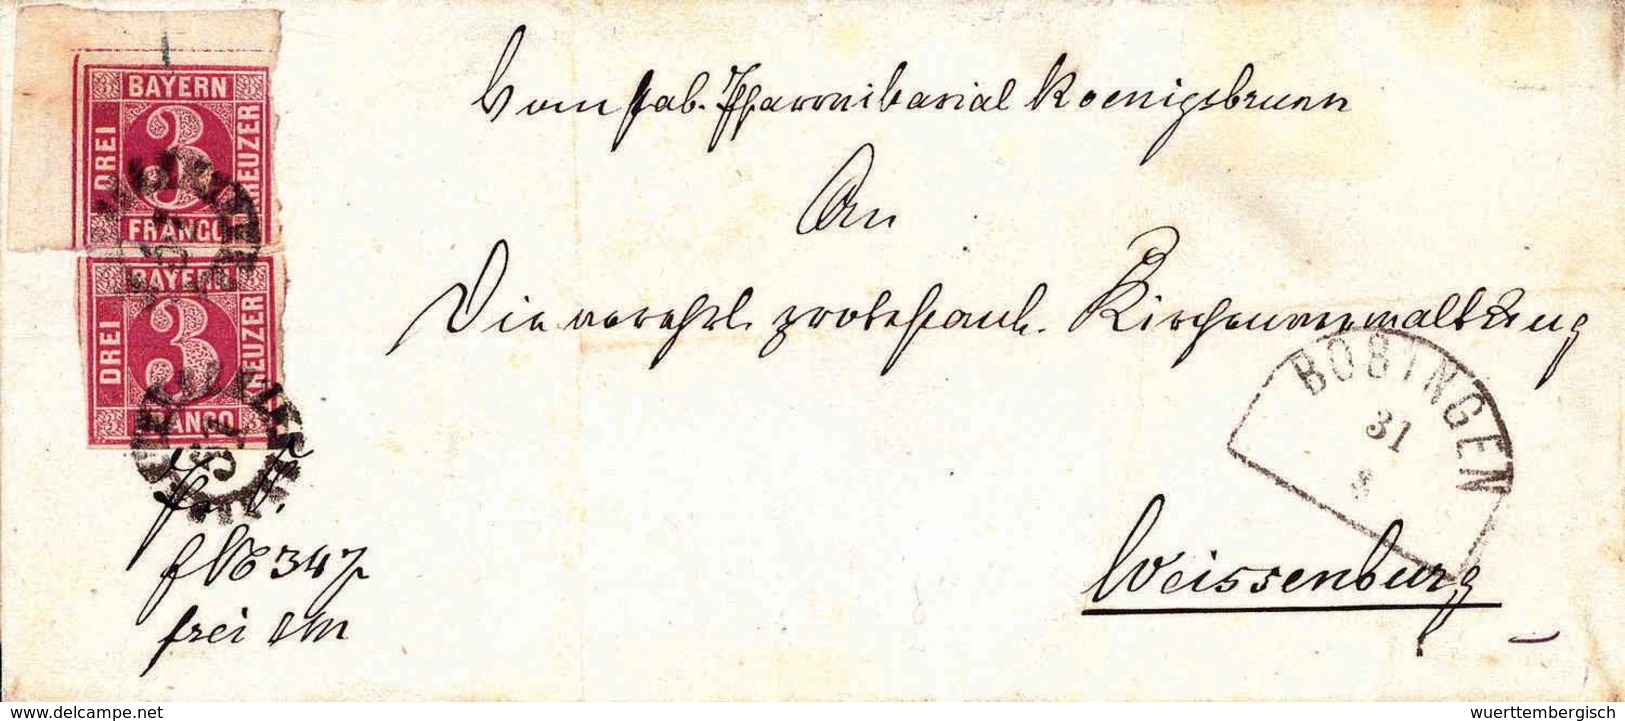 BAYERN
3
DREI
KREUZER
FRANCO
BAYERN
3
DREI
KREUZER
FRANCO
Vom Pfarrvikariat Koenigsbrunn
An
Die verehrl. protestant. Kirchenverwaltung
BOBINGEN
31
8
Weissenburg
347
frei
www.delcampe.net
wuerttembergisch